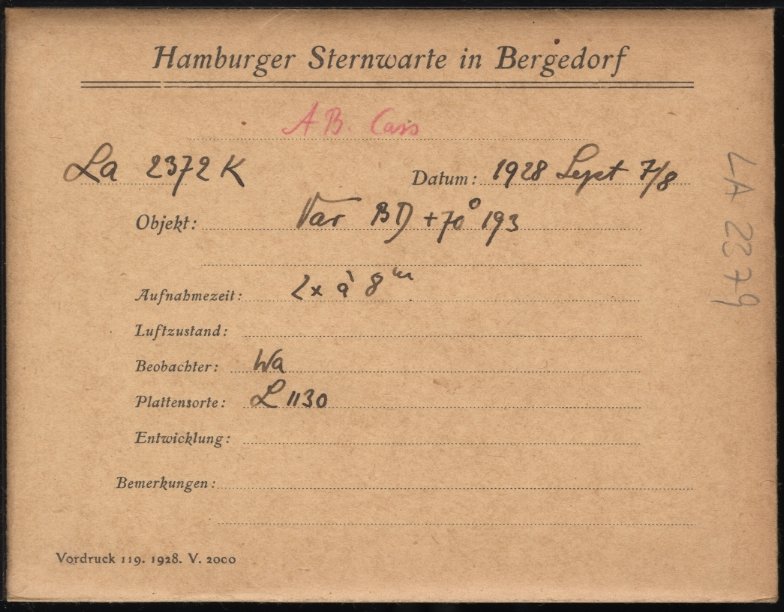 Hamburger Sternwarte in Bergedorf
AB Cass
La 2372 K Datum: 1928 Sept 7/8
Objekt: Var BD +70° 193
Aufnahmezeit: 2x à 8ᵐ
Luftzustand:
Beobachter: Wa
Plattensorte: L 1130
Entwicklung:
Bemerkungen:
Vordruck 119. 1928. V. 2000
LA 2379